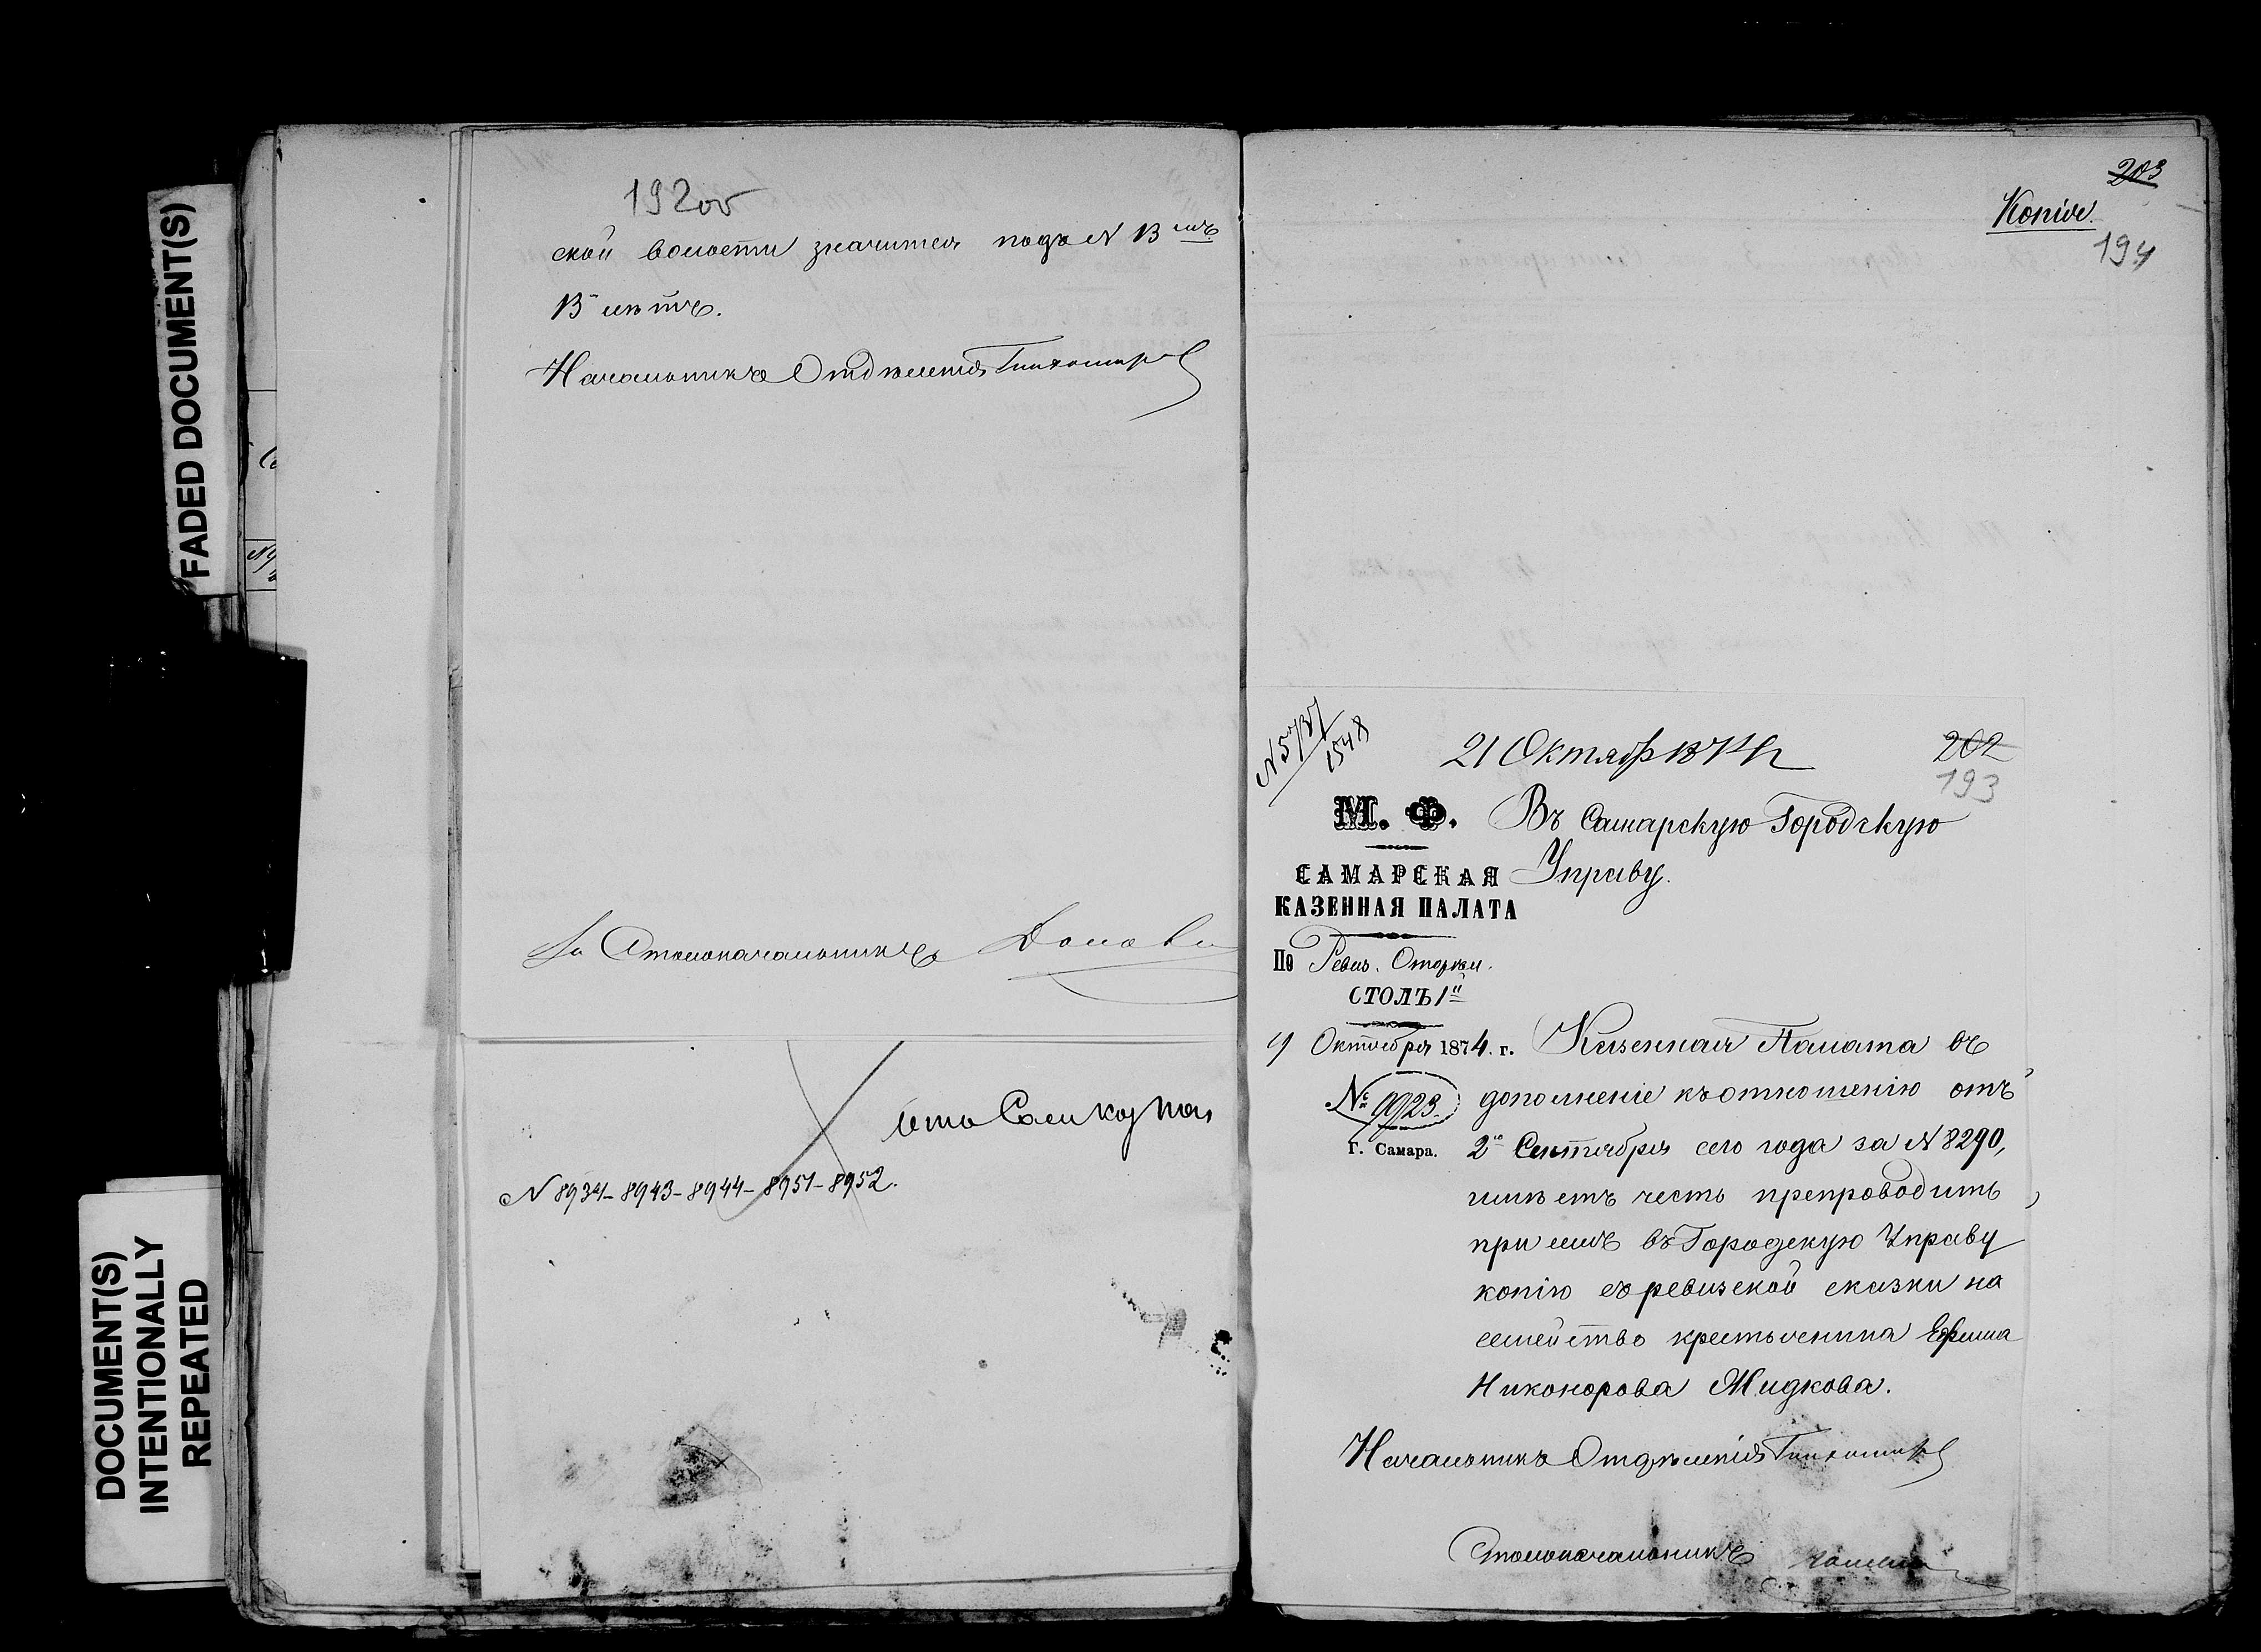 FADED DOCUMENT(S)
DOCUMENT(S)
INTENTIONALLY
REPEATED
192об
ской волости значится подъ N 13 мъ
13 лѣтъ.
Начальникъ Отдѣленія Тихомиров
За Столоначальника
N 8934-8943-8944-8951-8952.
203
Копія.
194
21 Октяб 1874 г
202
193
М. Ф.
Въ Самарскую Городскую
САМАРСКАЯ
Управу.
КАЗЕННАЯ ПАЛАТА
По Ревиз. Отдѣл.
СТОЛЪ 1й
Октября 1874. г.
Казенная Палата въ
№ 9923.
дополненіе къ отношенію отъ
Г. Самара.
2го Сентября сего года за N 8290,
имѣетъ честь препроводить
при семъ въ Городскую Управу
копію съ ревизской сказки на
семейство крестьянина Ефима
Никонорова Жидкова.
Начальникъ Отдѣленія Тихомиров
Столоначальникъ